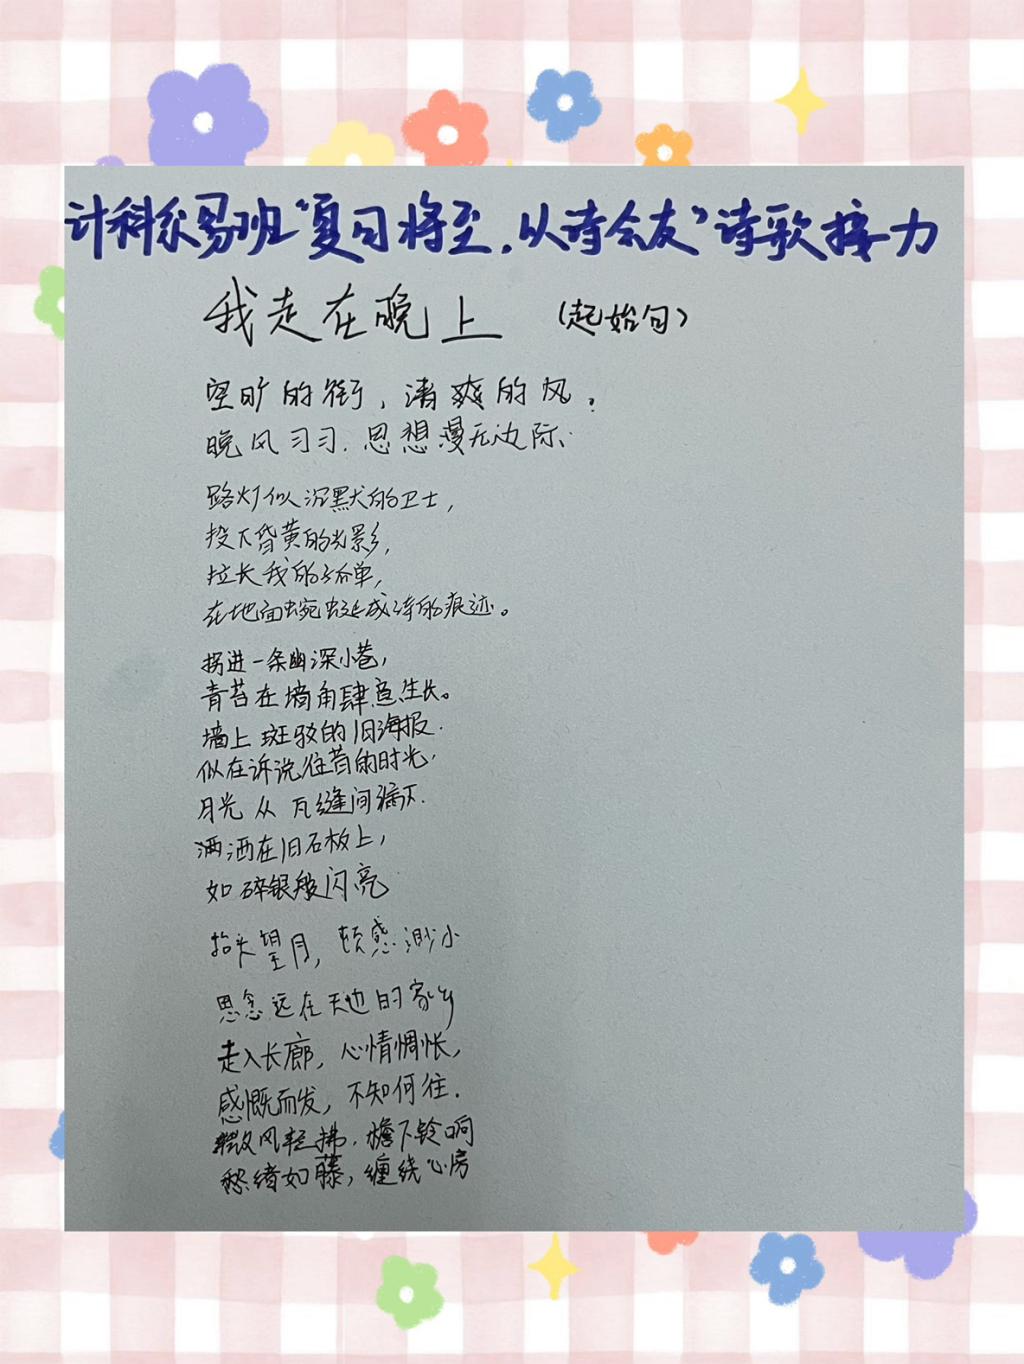 计科系易班“复习将至，以诗会友”诗歌接力
我走在晚上 (起始句)
空旷的街，清爽的风。
晚风习习，思想漫无边际。
路灯似沉默的卫士，
投下昏黄的光影，
拉长我的孤单，
在地面蜿蜒成诗的痕迹。
拐进一条幽深小巷，
青苔在墙角肆意生长。
墙上斑驳的旧海报.
似在诉说往昔的时光，
月光从瓦缝间漏下.
洒洒在旧石板上，
如碎银般闪亮
抬头望月，顿感渺小
思念远在天边的家乡
走入长廊，心情惆怅，
感慨而发，不知何往.
微风轻拂，檐下铃响
愁绪如藤，缠绕心房